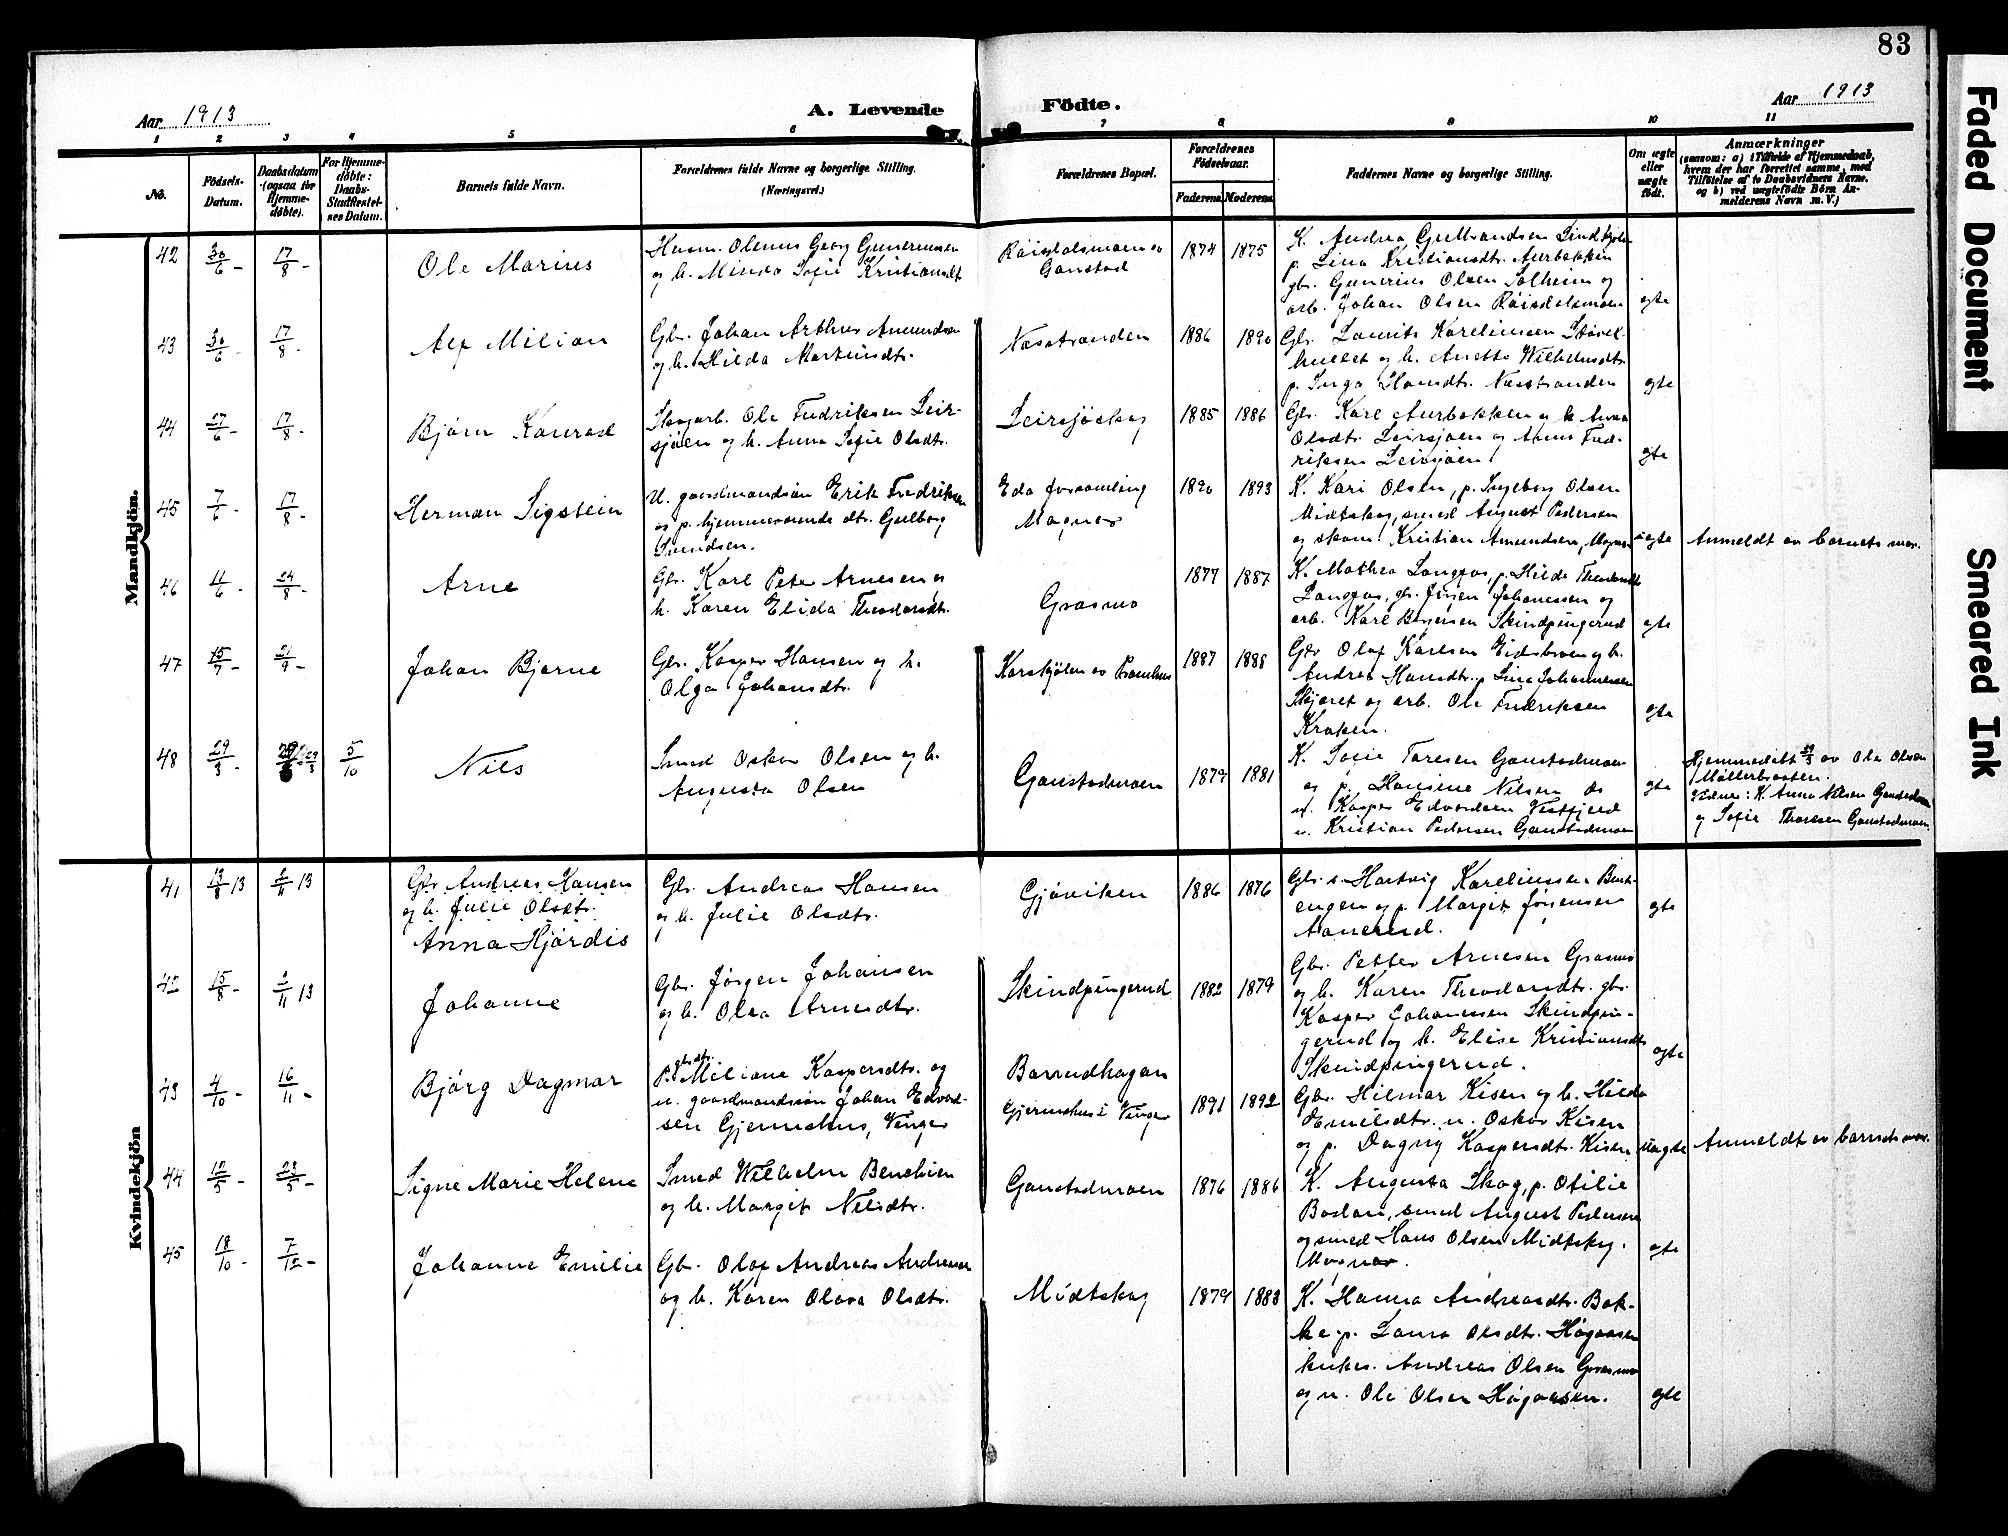 83
Aar 1913
A. Levende
Födte.
Aar 1913
1 2 3 4 5 6 7 8 9 10 11
No.
Födsels-Datum.
Daabsdatum (ogsaa for Hjemme-döbte).
For Hjemme-döbte: Daabs-Stadfæstel-ses Datum.
Barnets fulde Navn.
Forældrenes fulde Navne og borgerlige Stilling.
(Næringsvei.)
Forældrenes Bopæl.
Forældrenes Födselsaar.
Faderens. Moderens.
Faddernes Navne og borgerlige Stilling.
Om ægte eller uægte födt.
Anmærkninger
(saasom: a) i Tilfælde af Hjemmedaab,
hvem der har forrettet samme, med
Tilföielse af to Daabsvidners Navne,
og b) ved uægtefödte Börn An-
melderens Navn m. V.)
Mandkjön.
42 30/6 - 17/8 - Ole Marius
Husm. Olenus Georg Gunerius­sen
og h. Minda Sofie Kristiansdt.
Röisdalsmoen av
Gaustad
1874 1875
K. Andrea Gulbrandsen Lindkjölen
p. Lina Kristiansdtr. Aurbakken
gbr. Gunerius Olsen Solheim og
arb. Johan Olsen Röisdalsmoen
egte
43 30/6 17/8 - Alf Milian
Gbr. Johan Arthur Amundsen
og h. Hilda Martinsdtr.
Næsstranden
1886 1890
Gbr. Laurits Karelinssen Stövel-
hullet og h. Anette Wilhelmsdtr.
p. Inga Hansdtr. Næsstranden
egte
44 27/6 - 17/8 - Björn Konrad
Skogarb. Ole Fredriksen Leir-
sjöen og h. Anna Sofie Olsdtr.
Leirsjöskog
1885 1886
Gbr. Karl Aurbakken og h. Anna
Olsdtr. Leirsjöen og Arne Fred-
riksen Leirsjöen
egte
45 7/6 - 17/8 - Herman Sigstein
U. gaardmandssön Erik Fredriksen
og p. hjemmeværende dtr. Gulborg
Svendsen.
Eda forsamling
Magnor
1890 1893
K. Kari Olsen, p. Ingeborg Olsen
Midtskog, smed August Pedersen
og skom. Kristian Amundsen, Magnor
uegte
Anmeldt av barnets mor.
46 11/6 - 24/8 - Arne
Gbr. Karl Peter Arnesen og
h. Karen Elida Theodorsdtr.
Grasmo
1877 1887
K. Mathea Langfos, p. Hilda Theodorsdtr.
Langfos, gbr. Jörgen Johanessen og
arb. Karl Börjesen Skindpungerud
egte
47 15/7 - 21/9 - Johan Bjarne
Gbr. Kasper Hansen og h.
Olga Johansdtr.
Korskjölen av Pramhus
1887 1888
Gbr Olaf Karlsen Eidsbroen og h.
Andrea Hansdtr. p. Lina Johannessen
Skjæret og arb. Ole Fredriksen
Kroken.
egte
48 29/3 - 29/3 5/10 Nils
Smed Oskar Olsen og h.
Augusta Olsen
Gaustadmoen
1879 1881
K. Sofie Toresen Gaustadmoen
og p. Hansine Nilsen ds
u. Kasper Edvardsen Vestfjeld
u. Kristian Pedersen Gaustadmoen
egte
Hjemmedöbt 29/3 av Ole Olsen
Möllerbraaten.
Vidner: K. Anna Nilsen Gaustadmoen
og Sofie Thoresen Gaustadmoen.
Kvindekjön
41 13/8 13 2/11 13
Gbr. Andreas Hansen
og h. Julie Olsdtr.
Anna Hjördis
Gbr. Andreas Hansen
og h. Julie Olsdtr.
Gjöviken
1886 1876
Gbr. s. Hartvig Karelinssen Bret-
engen og p. Margit Jörgensen
Aanerud.
egte
42 15/8 - 2/11 13 Johanne
Gbr. Jörgen Johansen
og h. Olea Arnesdtr.
Skindpungerud
1882 1879
Gbr. Petter Arnesen Grasmo
og h. Karen Theodorsdtr. gbr.
Kasper Johanessen Skindpun-
gerud og h. Elise Kristiansdtr
Skindpungerud.
egte
43 4/10 - 16/11 - Björg Dagmar
P. gbrdtr. Miliane Kaspersdtr. og
u. gaardmandssön Johan Edvard-
sen Gjermshus, Vinger
Borrudhagan
Gjermshus i Vinger
1891 1892
Gbr. Hilmar Kisen og h. Hilda
Emilsdtr. u. Oskar Kisen
og p. Dagny Kaspersdtr. Kisen
uegte
Anmeldt av barnets mor.
44 12/5 - 23/5 - Signe Marie Helene
Smed Wilhelm Bendixen
og h. Margit Nilsdtr.
Gaustadmoen
1876 1886
K. Augusta Skog, p. Otilie
Baslan, smed August Pedersen
og smed Hans Olsen Midtskog,
Magnor.
egte
45 18/10 - 7/12 - Johanne Emilie
Gbr. Olaf Andreas Andersen
og h. Karen Olava Olsdtr.
Midtskog
1879 1883
K. Hanna Andreasdtr. Bak-
ke, p. Laura Olsdtr. Högaasen
kirkes. Andreas Olsen Grasmo
og u. Ole Olsen Högaasen.
egte
Faded Document
Smeared Ink